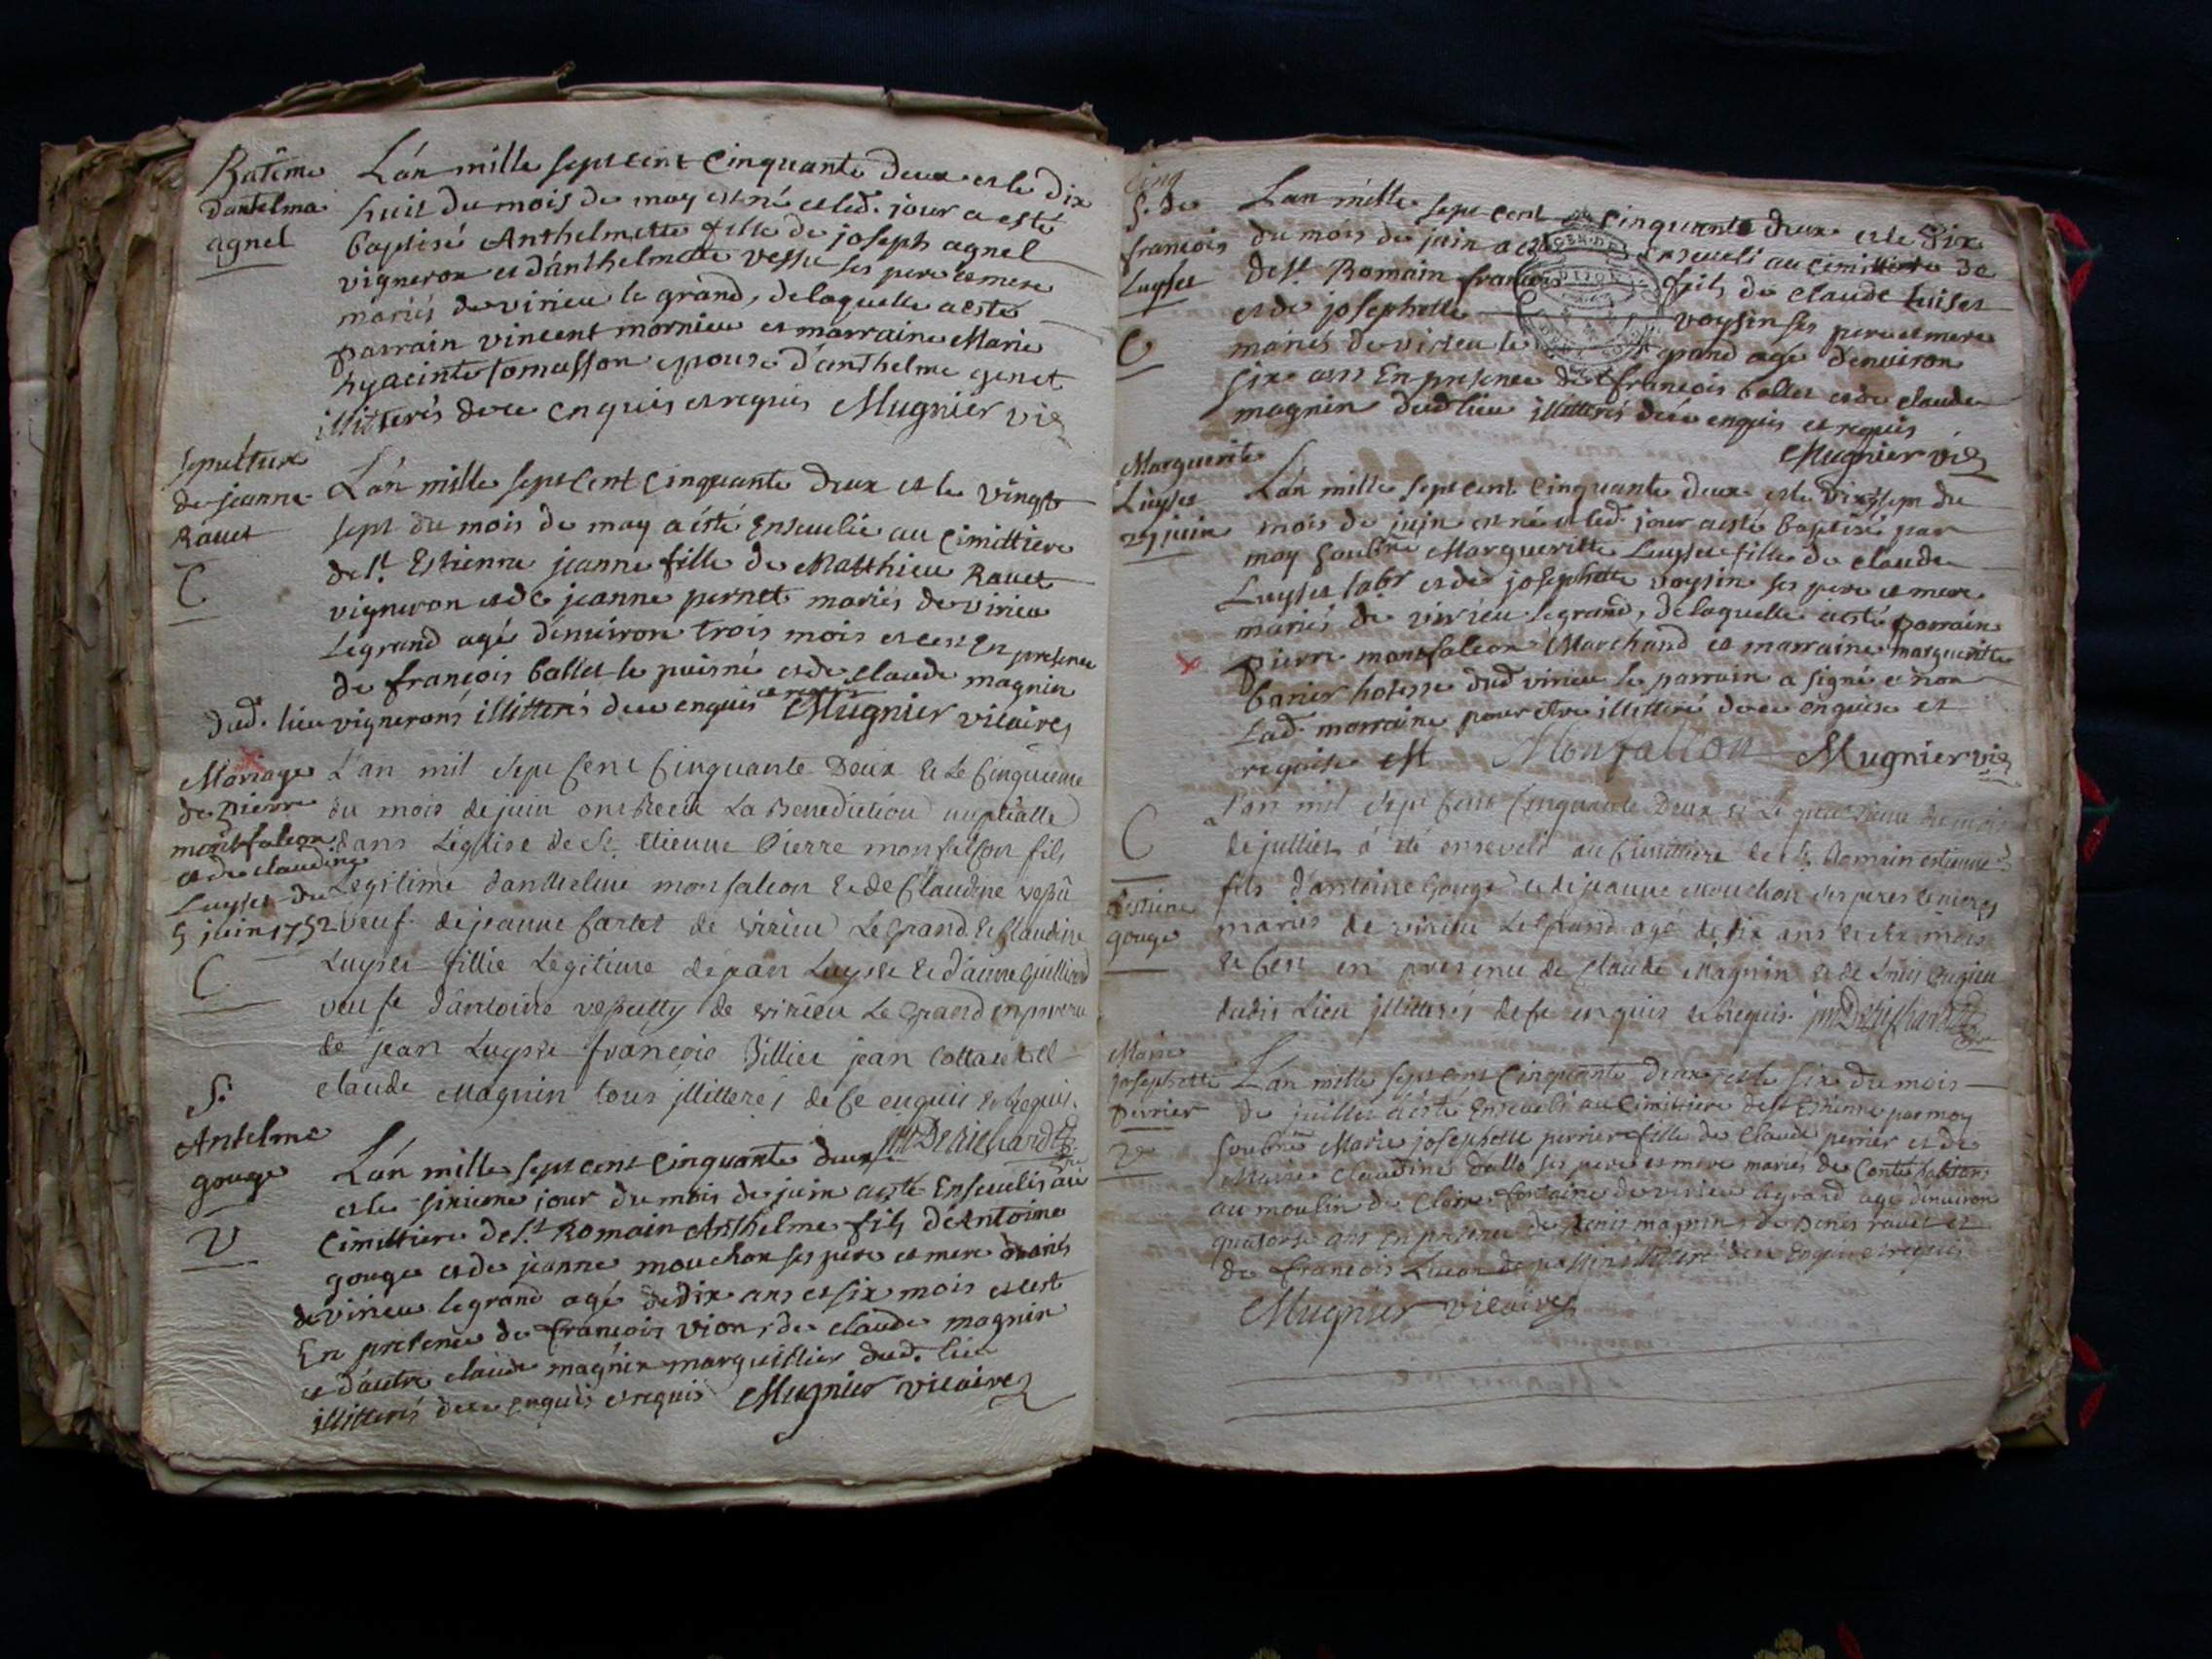 Batême
d'antelma
agnel
L'an mille sept cent cinquante deux et le dix
huit du mois de may est né et led. jour a esté
baptisé Anthelmette fille de joseph agnel
vigneron et d'anthelmette vessu ses pere et mere
mariés de virieu le grand, de laquelle a esté
parrain vincent mornieu et marraine Marie
hyacinte tomasson epouse d'anthelme genet
illitterés de ce enquis et requis Mugnier vic
sepulture
de jeanne
Ravet
C
L'an mille sept cent cinquante deux et le vingt
sept du mois de may a été Ensevelie au cimittiere
de st. Estienne jeanne fille de Matthieu Ravet
vigneron et de jeanne pernet mariés de virieu
Legrand agé d'environ trois mois et ce En presence
de françois ballet le puisné et de claude magnin
dud. lieu vignerons illitterés de ce enquis et requis Mugnier vicaire
Mariage
de pierre
montfalcon
et de claudine
Luyset du
5 juin 1752
C
L'an mil sept cent cinquante Deux et Le cinquieme
du mois de juin ont Receu La Benediction nuptialle
dans L'église de St. Etienne Pierre monfalcon fils
Legitime d'anthelme monfalcon et de Claudine vessu
veuf de jeanne Cartet de virieu Le grand et Claudine
Luyset fillie Legitime de jean Luyset et d'anne Guilland
veuve d'antoine de virieu Le grand en presence
de jean Luyset françois Billiet jean Collavet et
claude Magnin tous illitteres de ce enquis et Requis.
S.
Antelme
gouge
V
L'an mille sept cent cinquante deux
et le sixieme jour du mois de juin a esté Enseveli au
cimittiere de st. Romain Anthelme fils d'Antoine
gouge et de jeanne mouchon ses pere et mere mariés
de virieu legrand agé de dix ans et six mois et ce
En presence de françois vion, de claude magnin
et d'autre claude magnin marguillier dud. lieu
illitterés de ce enquis et requis Mugnier vicaire
cinq
S. de
francois
Luyset
C
L'an mille sept cent cinquante deux et le dix
du mois de juin a esté Enseveli au cimittiere de
de st. Romain francois fils de claude Luiset
et de josephette voysin ses pere et mere
mariés de virieu le grand agé d'environ
six ans En presence de françois ballet et de claude
magnin dudlieu illitterés de ce enquis et requis
Mugnier vic
Marguerite
Luyset
27 juin
L'an mille sept cent cinquante deux et le vingt sept du
mois de juin est né et led. jour a esté baptisé par
moy soubné Margueritte Luyset fille de claude
Luyset labr et de josephette voysin ses pere et mere
mariés de virieu legrand, de laquelle a esté parrain
pierre monfalcon Marchand et marraine marguerite
barier hotesse dud virieu le parrain a signé et non
Lad. marraine pour etre illitteré de ce enquise et
requise est Monfalcon Mugnier vic
C
Estiene
gouge
L'an mil sept cent cinquante Deux et Le du mois
de julliet à été enseveli au Cimittiere de St. Romain estienne
fils d'antoine Gouge et de jeanne Mouchon ses peres et meres
mariés de virieu Le grand agé de dix ans et six mois
et ce en presence de Claude Magnin et de Louis
dudit Lieu illitterés de ce enquis et Requis.
Marie
josephette
perrier
V
L'an mille sept cent cinquante deux et le six du mois
de juillet a esté Enseveli au cimittiere de st Estienne par moy
soubné Marie josephette perrier fille de Claude perrier et de
Marie Claudine dallo ses pere et mere mariés de habitans
au moulin de Claire fontaine de virieu legrand agé d'environ
quatorse ans En presence de denis magnin, de Denis ravet et
de francois illitterés de ce Enquis et requis
Mugnier vicaire